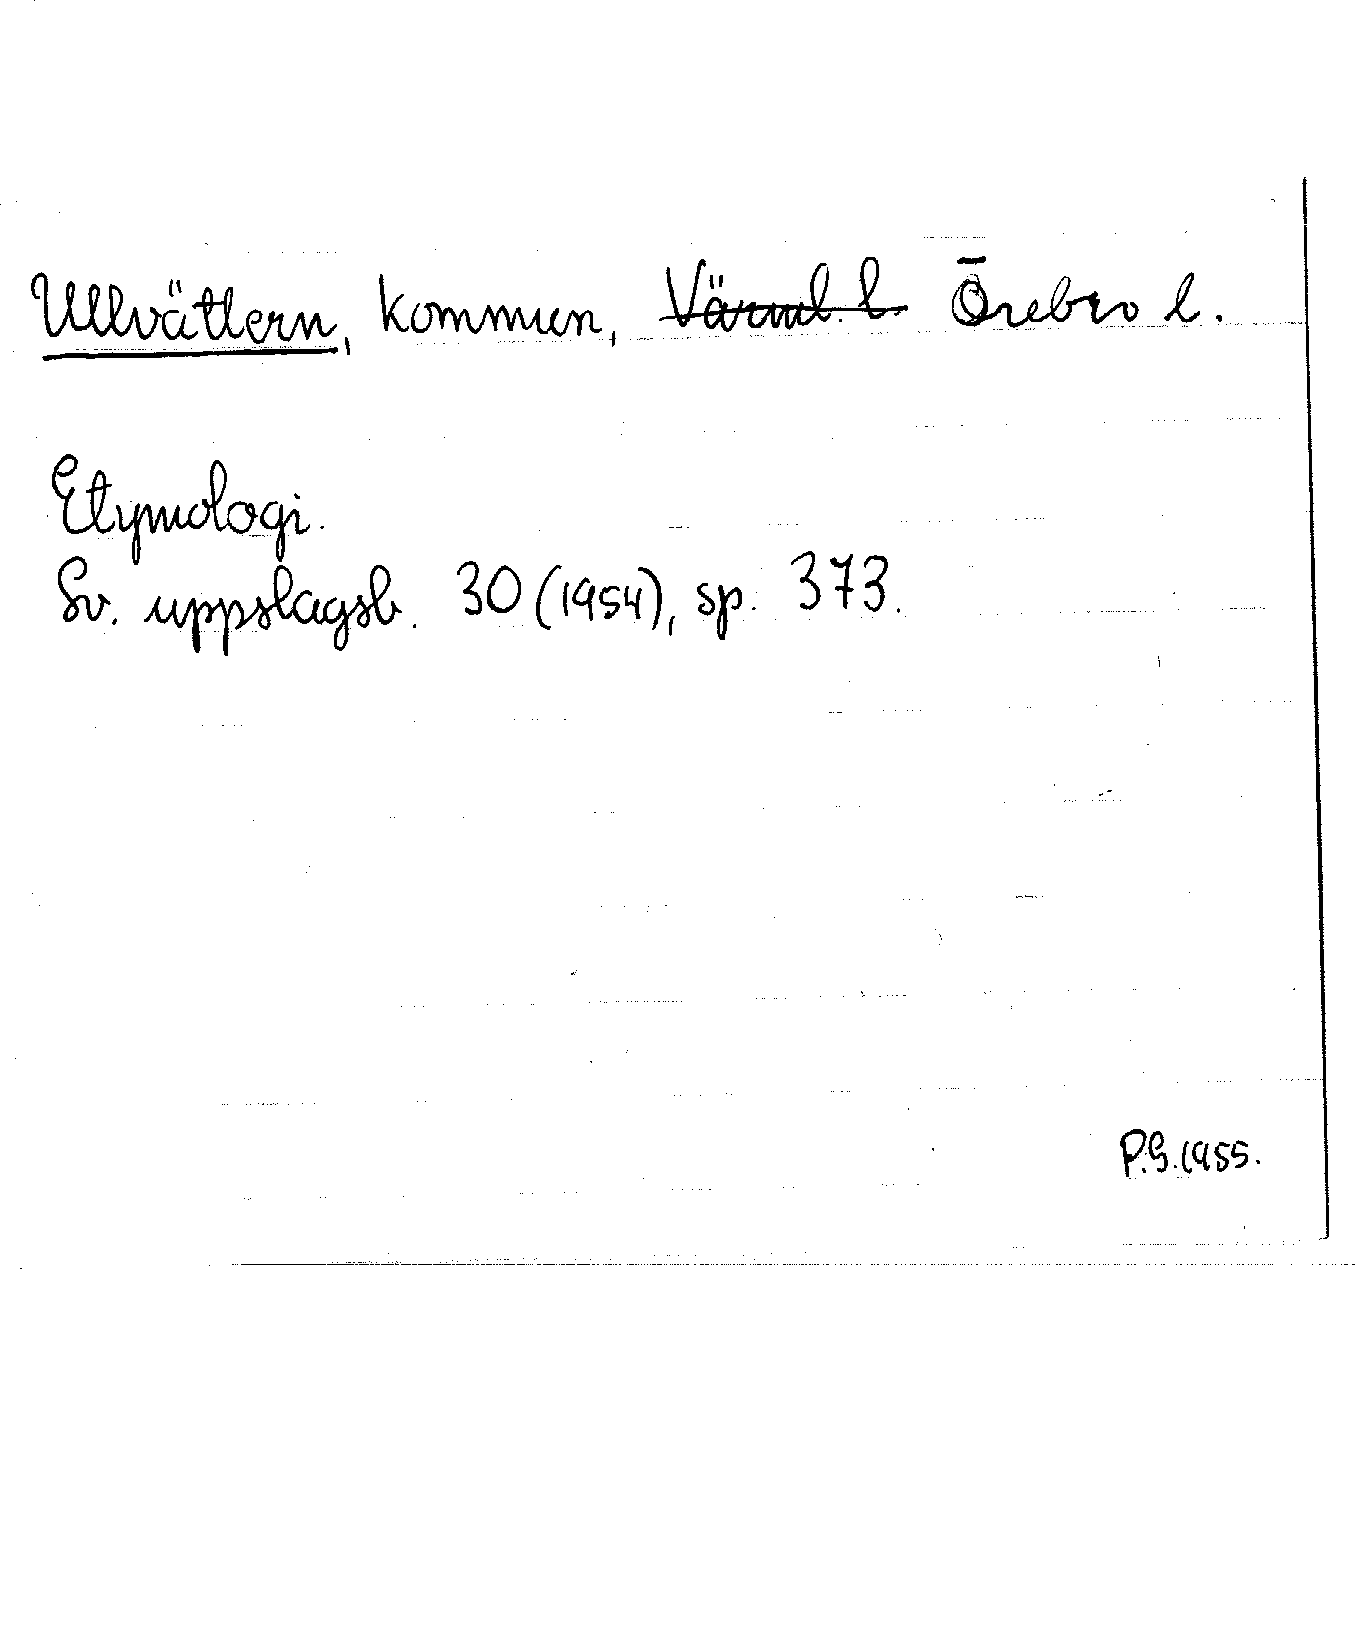 Ullvättern, kommun, Värml. l. Örebro l.
Etymologi.
Sv. uppslagsb. 30 (1954), sp. 373.
P.G. 1955.